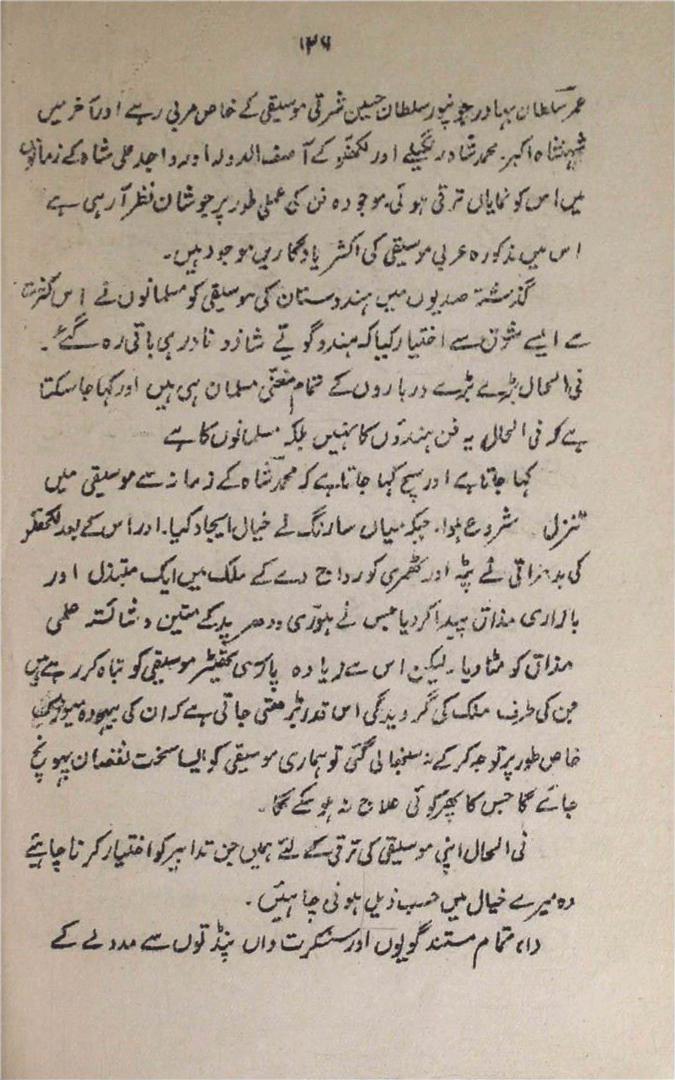 ۱۳۶
عمر سلطان بہادر جونپور سلطان حسین شرقی موسیقی کے خاص مربی رہے اور آخر میں
شہنشاہ اکبر۔ محمد شاہ رنگیلے اور لکھنؤ کے آصف الدولہ اور واجد علی شاہ کے زمانوں
میں اس کو نمایاں ترقی ہوئی۔ موجودہ فن کی عملی طور پر جو شان نظر آ رہی ہے
اس میں مذکورہ عربی موسیقی کی اکثر یادگاریں موجود ہیں۔
گذشتہ صدیوں میں ہندوستان کی موسیقی کو مسلمانوں نے اس کثرت
سے ایسے شوق سے اختیار کیا کہ ہندو گویّے شاذ و نادر ہی باقی رہ گئے۔
فی الحال بڑے بڑے درباروں کے تمام مغنّی مسلمان ہی ہیں اور کہا جا سکتا
ہے کہ فی الحال یہ فن ہندوؤں کا نہیں بلکہ مسلمانوں کا ہے
کہا جاتا ہے اور سچ کہا جاتا ہے کہ محمد شاہ کے زمانہ سے موسیقی میں
تنزل شروع ہوا۔ جبکہ میاں سارنگ نے خیال ایجاد کیا۔ اور اس کے بعد لکھنؤ
کی بدمذاقی نے ٹپہ اور ٹھمری کو رواج دے کے ملک میں ایک مبتذل اور
بازاری مذاق پیدا کر دیا جس نے ہوری و دھرپد کے متین و شائستہ علمی
مذاق کو مٹا دیا۔ لیکن اس سے زیادہ پارسی تھیٹر موسیقی کو تباہ کر رہے ہیں
جن کی طرف ملک کی گرویدگی اس قدر بڑھتی جاتی ہے کہ ان کی بیہودہ میوزک
خاص طور پر توجہ کر کے نہ سنبھالی گئی تو ہماری موسیقی کو ایسا سخت نقصان پہونچ
جائے گا جس کا پھر کوئی علاج نہ ہو سکے گا۔
فی الحال اپنی موسیقی کی ترقی کے لئے ہمیں جن تدابیر کو اختیار کرنا چاہیئے
وہ میرے خیال میں حسب ذیل ہونی چاہئیں۔
(۱) تمام مستند گویوں اور سنسکرت داں پنڈتوں سے مدد لے کے